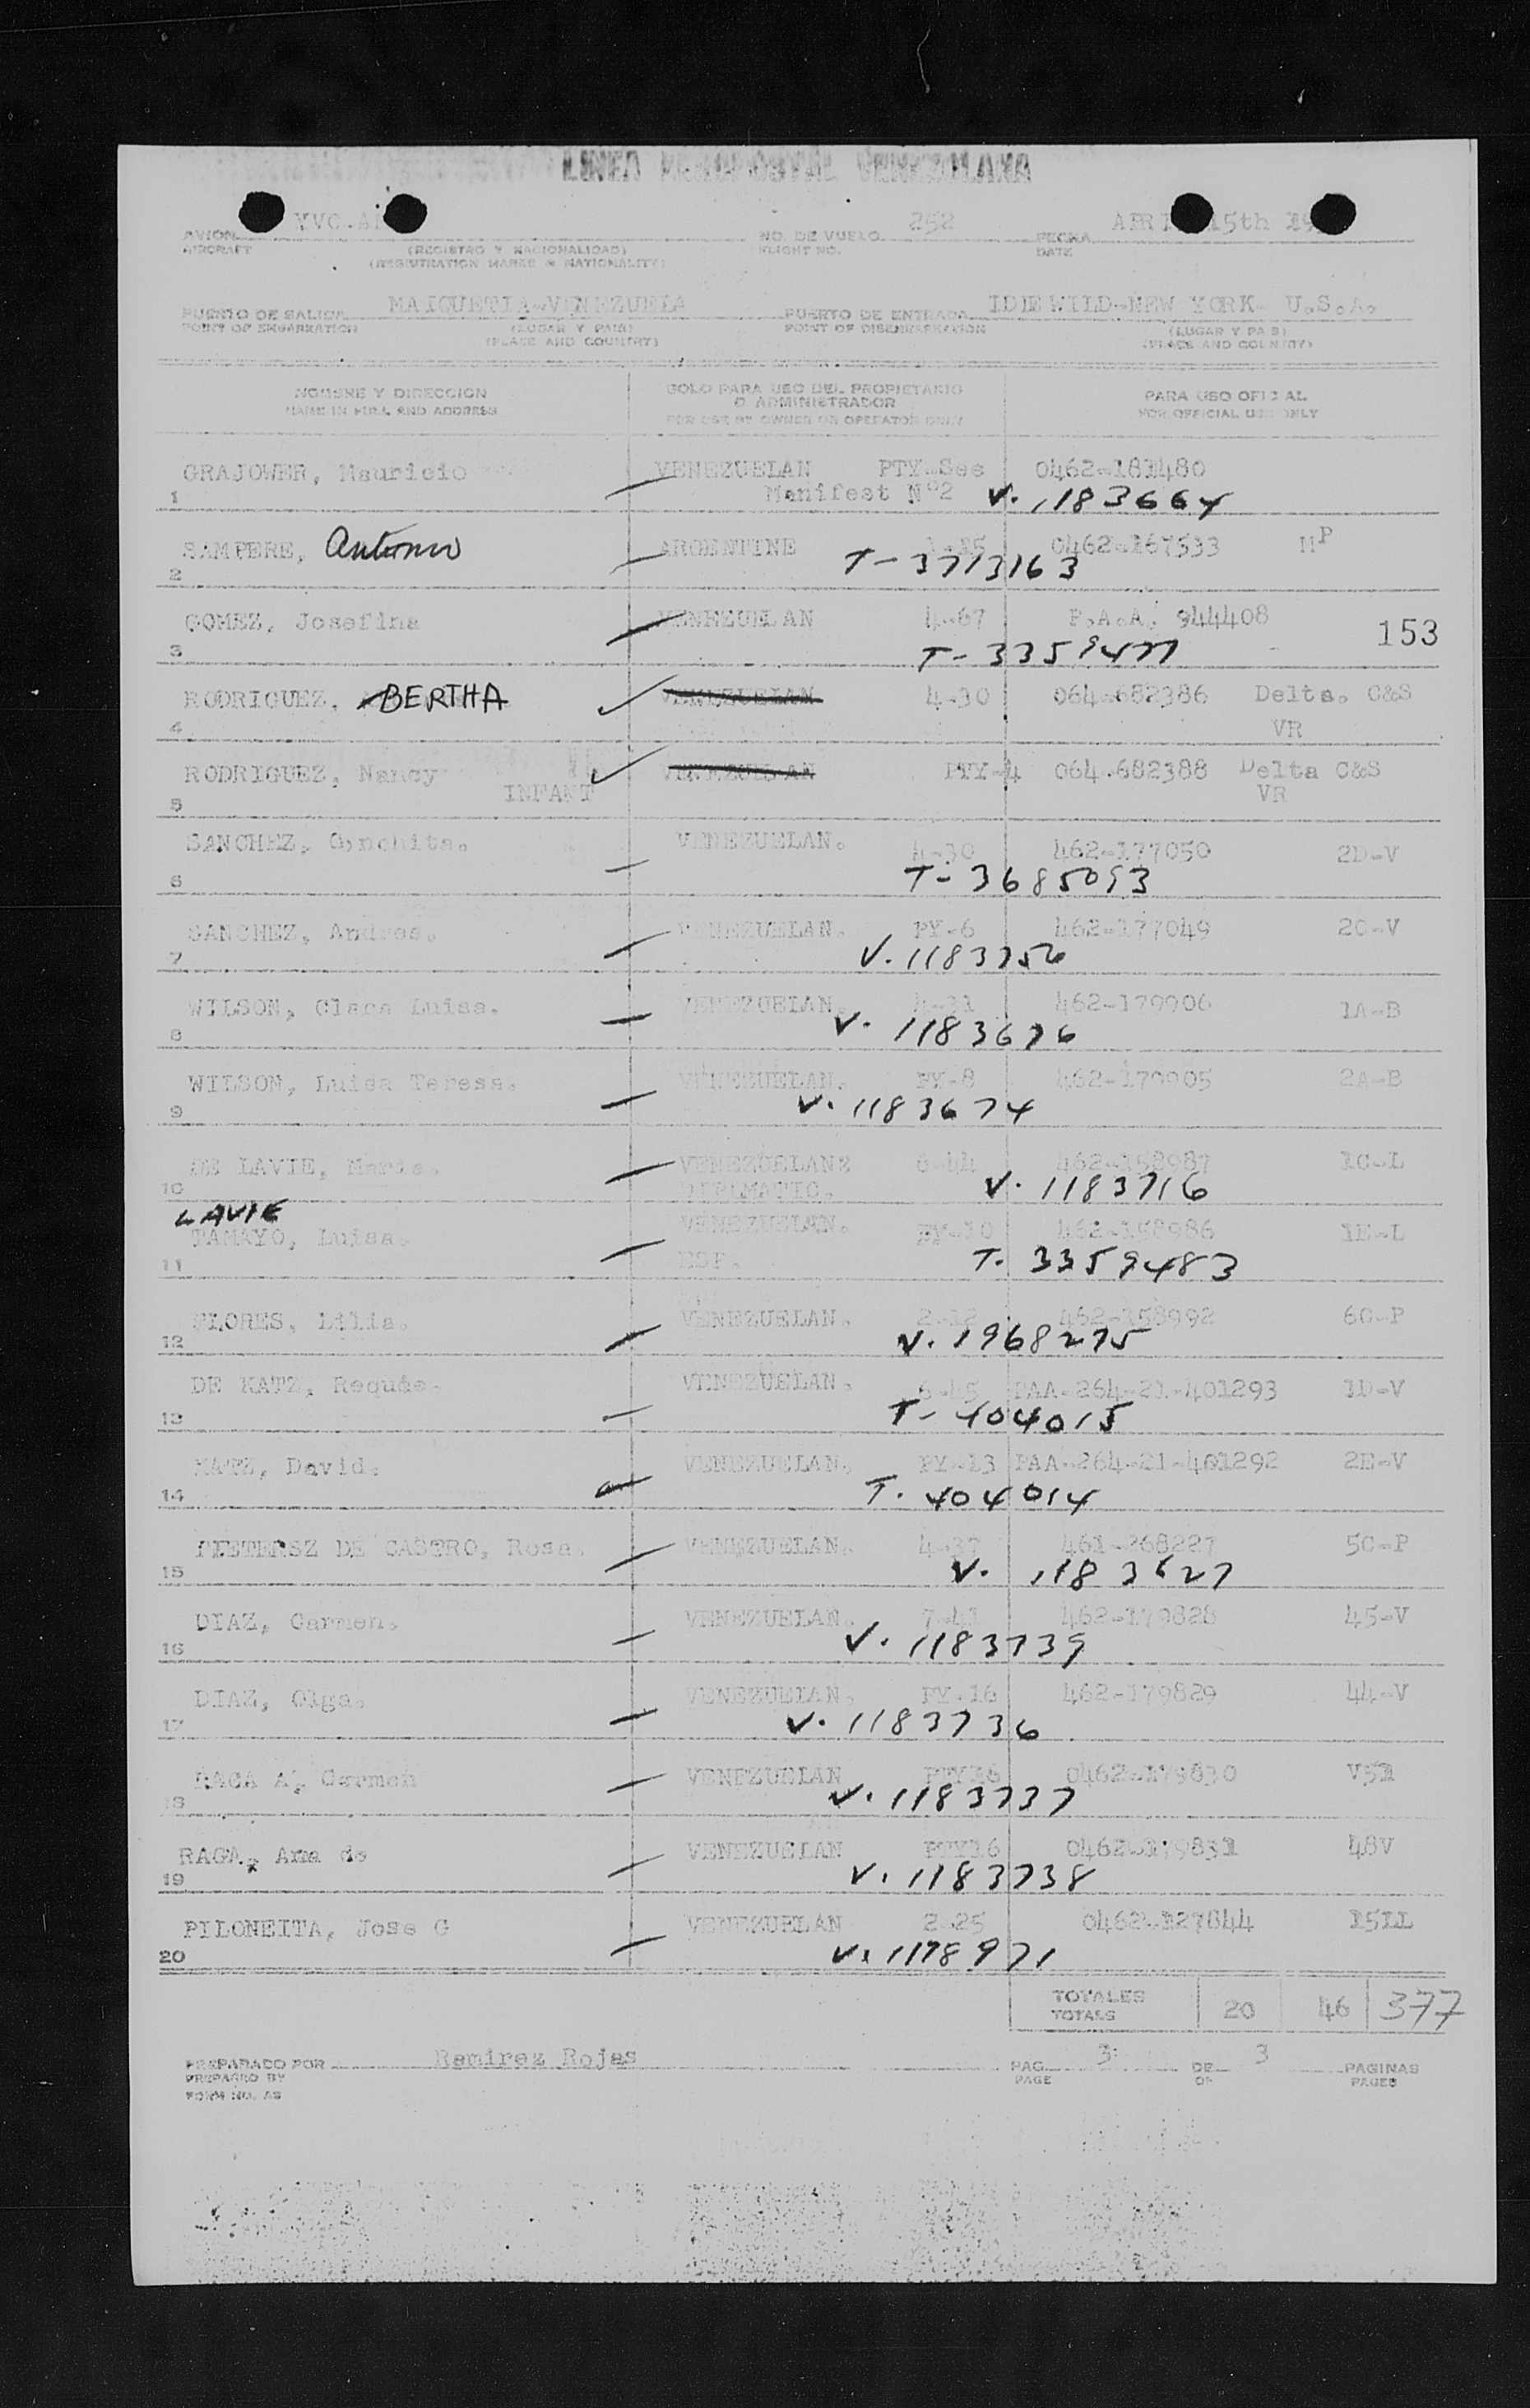 LINEA AEROPOSTAL VENEZOLANA
YVC. 252 15th
AVION NO. DE VUELO FECHA
AIRCRAFT (REGISTRO Y NACIONALIDAD) FLIGHT NO. DATE
(REGISTRATION MARKS & NATIONALITY)
MAIQUETIA-VENEZUELA IDLEWILD-NEW YORK- U.S.A.
PUERTO DE SALIDA PUERTO DE ENTRADA
POINT OF EMBARKATION (LUGAR Y PAIS) POINT OF DISEMBARKATION (LUGAR Y PAIS)
(PLACE AND COUNTRY) (PLACE AND COUNTRY)
NOMBRE Y DIRECCION SOLO PARA USO DEL PROPIETARIO PARA USO OFICIAL
NAME IN FULL AND ADDRESS O ADMINISTRADOR FOR OFFICIAL USE ONLY
FOR USE BY OWNER OR OPERATOR ONLY
GRAJOWER, Mauricio VENEZUELAN PTY-See 0462-181480
1 Manifest Nº2 V. 1183664
SAMPERE, Antonio ARGENTINE 0462-167533 MP
2 T-3713163
GOMEZ, Josefina VENEZUELAN 4-67 P.A.A. 944408
3 T-3359477 153
RODRIGUEZ, BERTHA VENEZUELAN 4-30 064-682386 Delta. C&S
4 VR
RODRIGUEZ, Nancy VENEZUELAN PTY-4 064.682388 Delta C&S
5 INFANT VR
SANCHEZ, Conchita. VENEZUELAN. 4-30 462-177050 2D-V
6 T-3685093
SANCHEZ, Andres. VENEZUELAN. PY-6 462-177049 2C-V
7 V. 1183756
WILSON, Clara Luisa. VENEZUELAN. 4-31 462-179906 1A-B
8 V. 1183676
WILSON, Luisa Teresa. VENEZUELAN. PY-8 462-179905 2A-B
9 V. 1183674
DE LAVIE, Maria. VENEZUELANE 6-44 462-158987 1C-L
10 V. 1183716
LAVIE
TAMAYO, Luisa. VENEZUELAN. PY-10 462-158986 1E-L
11 T. 3359483
FLORES, Lilia. VENEZUELAN. 2-12 462-158992 6C-P
12 V. 1968275
DE KATZ, Requde. VENEZUELAN. 6-45 PAA-264-21-401293 1D-V
13 T-404015
KATZ, David. VENEZUELAN. PY-13 PAA-264-21-401292 2E-V
14 T. 404014
PIETERSZ DE CASTRO, Rosa. VENEZUELAN. 4-37 461-268227 5C-P
15 V. 1183627
DIAZ, Carmen. VENEZUELAN. 7-41 462-179828 45-V
16 V. 1183739
DIAZ, Olga. VENEZUELAN. PY-16 462-179829 44-V
17 V. 1183736
RAGA A, Carmen VENEZUELAN PTY16 0462-179830 V51
18 V. 1183737
RAGA, Ana de VENEZUELAN PTY16 0462-179831 48V
19 V. 1183738
PILONEITA, Jose G VENEZUELAN 2-25 0462-127844 15LL
20 V. 1178971
TOTALES
TOTALS 20 46 377
PREPARADO POR Ramirez Rojas PAG. 3 DE 3 PAGINAS
PREPARED BY PAGE OF PAGES
FORM NO. A8